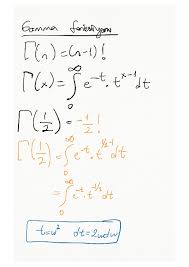 Gamma fonksiyonu
Γ(n) = (n-1)!
Γ(x) = ∫₀^∞ e^-t . t^x-1 dt
Γ(1/2) = -1/2 !
Γ(1/2) = ∫₀^∞ e^-t . t^1/2-1 dt
= ∫₀^∞ e^-t . t^-1/2 dt
t=u² dt=2udu